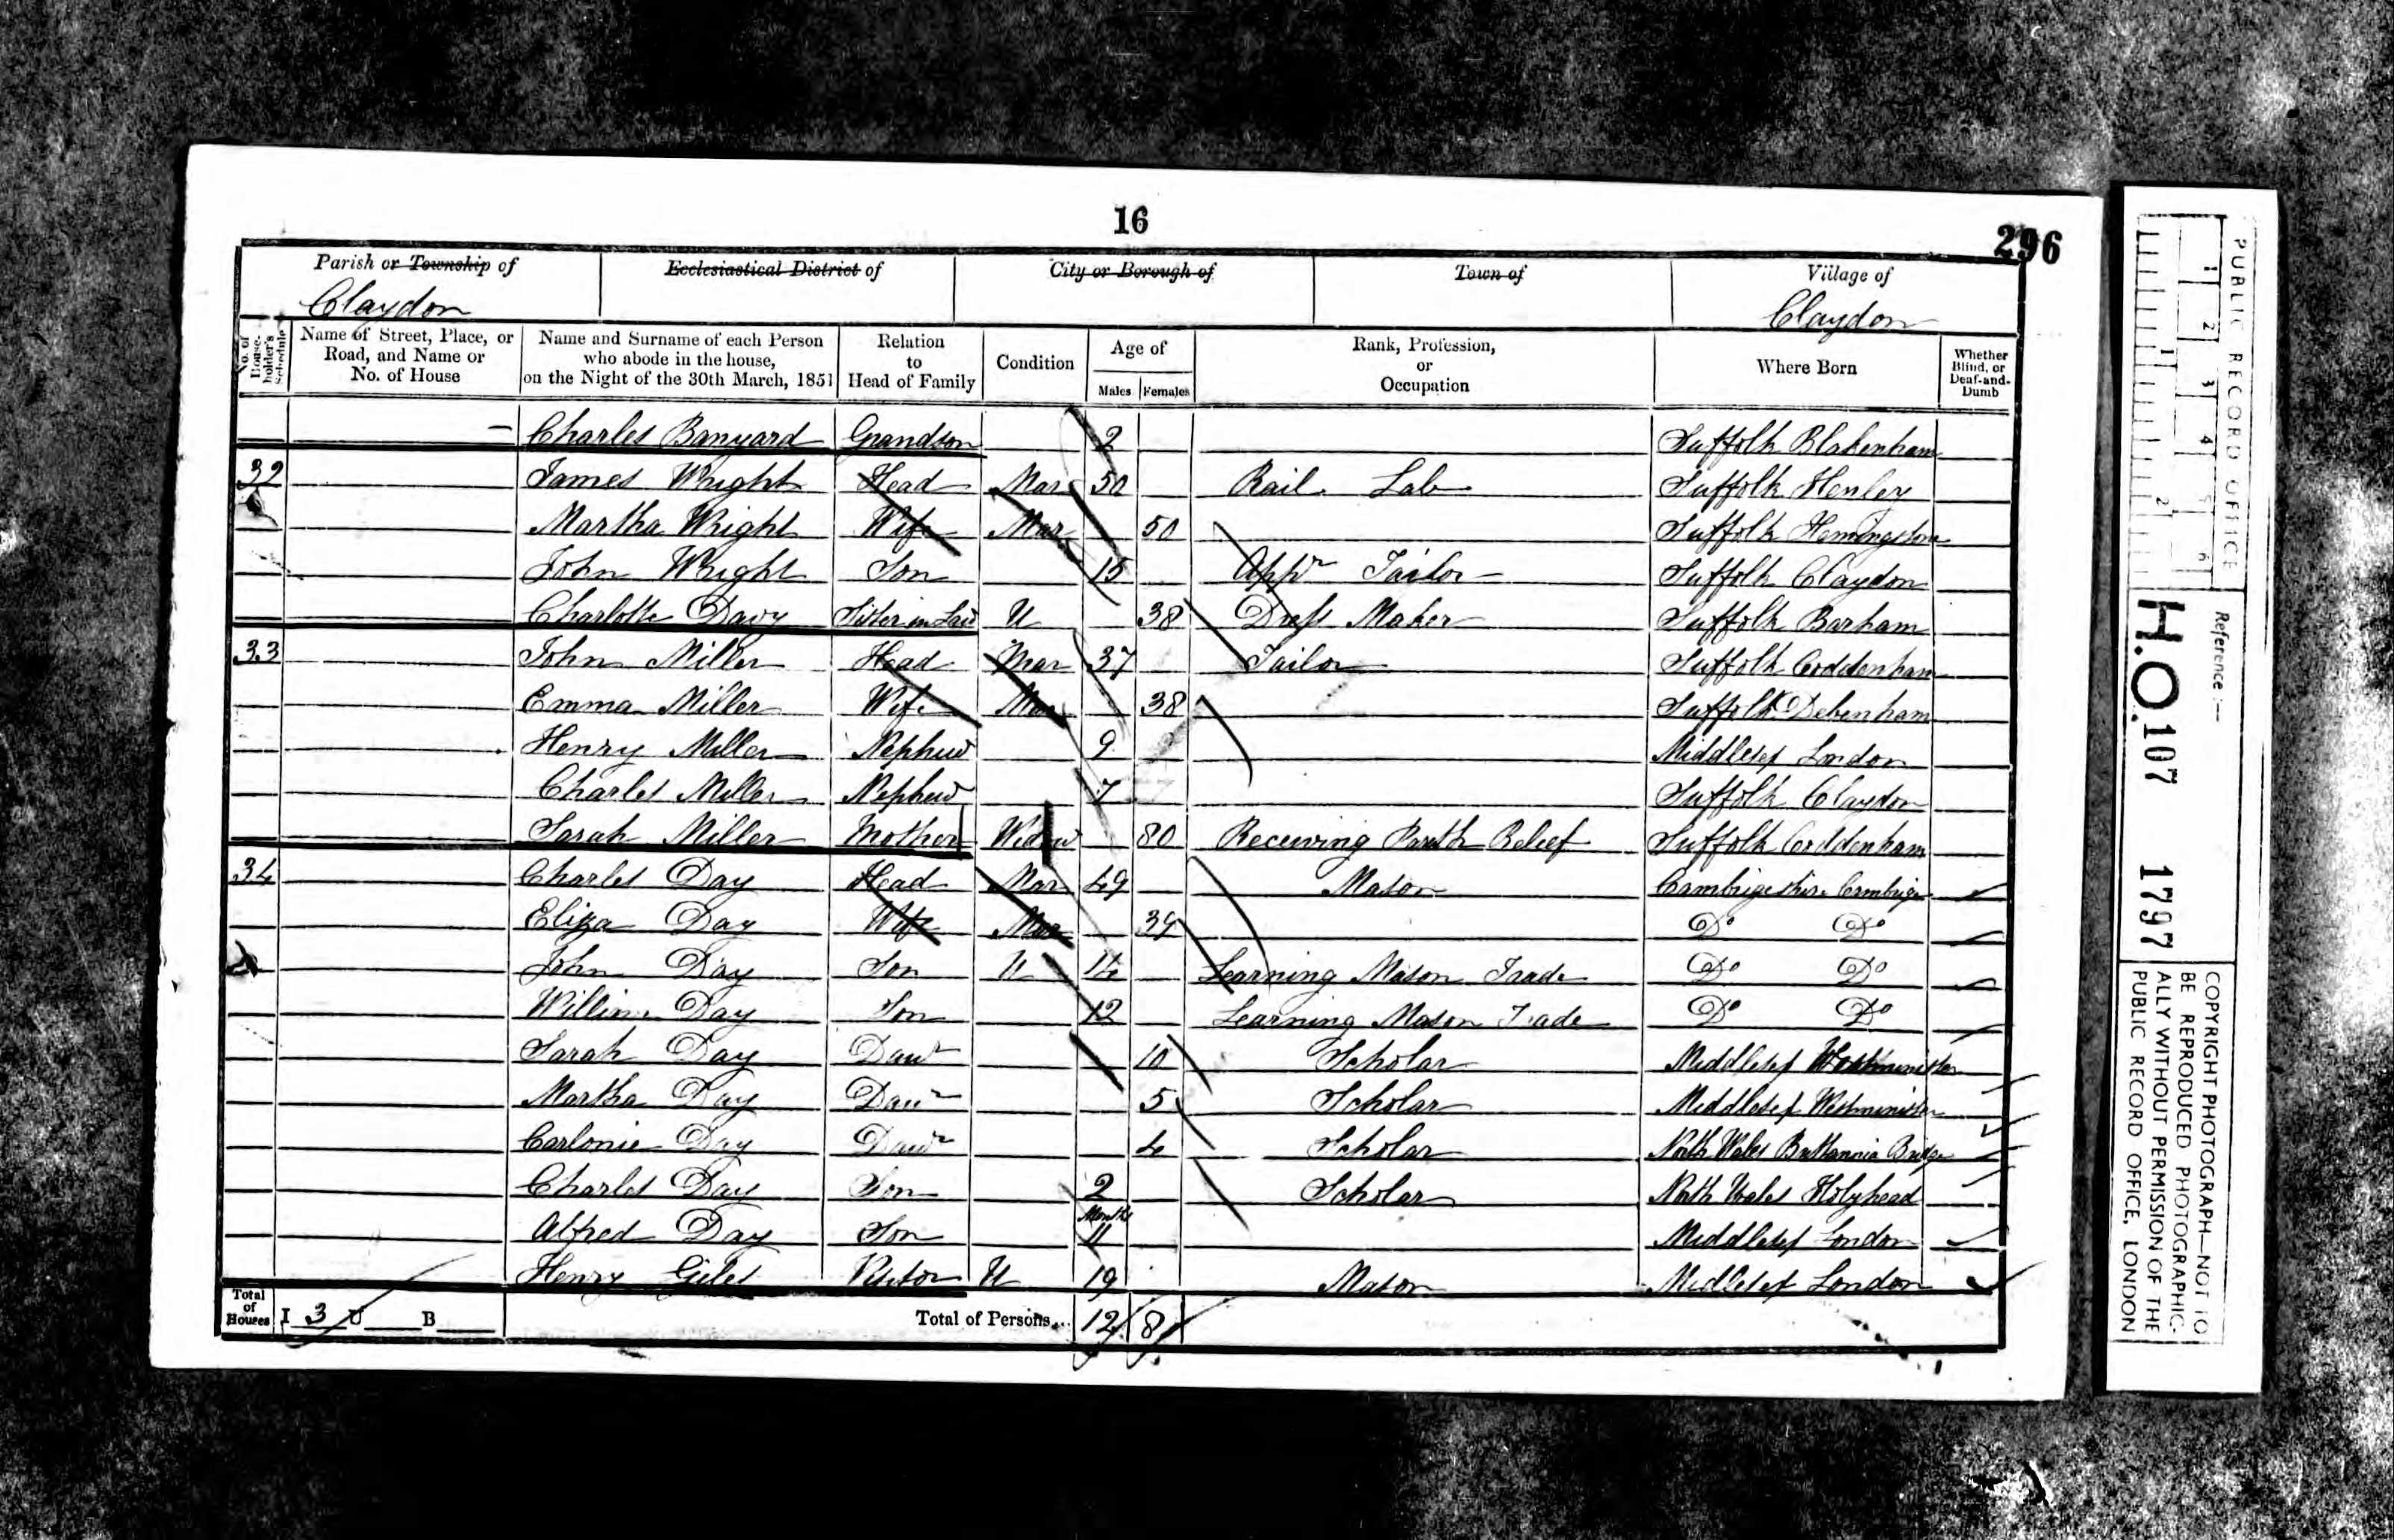 16
296
Parish or Township of Ecclesiastical District of City or Borough of Town of Village of
Claydon Claydon
No. of House-holder's Schedule Name of Street, Place, or Road, and Name or No. of House Name and Surname of each Person who abode in the house, on the Night of the 30th March, 1851 Relation to Head of Family Condition Age of Males Females Rank, Profession, or Occupation Where Born Whether Blind, or Deaf-and-Dumb
Charles Banyard Grandson 2 Suffolk Blakenham
32 James Wright Head Mar 50 Rail Lab Suffolk Henley
Martha Wright Wife Mar 50 Suffolk Hemingston
John Wright Son 15 Appr Tailor Suffolk Claydon
Charlotte Davy Sister in Law U 38 Dress Maker Suffolk Barham
33 John Miller Head Mar 37 Tailor Suffolk Coddenham
Emma Miller Wife Mar 38 Suffolk Debenham
Henry Miller Nephew 9 Middlesex London
Charles Miller Nephew 7 Suffolk Claydon
Sarah Miller Mother Widow 80 Receiving Parsh Relief Suffolk Coddenham
34 Charles Day Head Mar 49 Mason Cambrigeshire Cambrige
Eliza Day Wife Mar 39 Do Do
John Day Son U 14 Learning Mason Trade Do Do
William Day Son 12 Learning Mason Trade Do Do
Sarah Day Daur 10 Scholar Middlesex Westminister
Martha Day Daur 5 Scholar Middlesex Westminister
Carlonie Day Daur 4 Scholar North Wales Brittannia Bridge
Charles Day Son 2 Scholar North Wales Holyhead
Alfred Day Son Months 11 Middlesex London
Henry Giles Visitor U 19 Mason Midlesex London
Total of Houses I 3 U B Total of Persons... 12 8
PUBLIC RECORD OFFICE
1 2 3 4 5 6
1 2
Reference :—
H.O. 107 1797
COPYRIGHT PHOTOGRAPH—NOT TO
BE REPRODUCED PHOTOGRAPHIC-
ALLY WITHOUT PERMISSION OF THE
PUBLIC RECORD OFFICE, LONDON